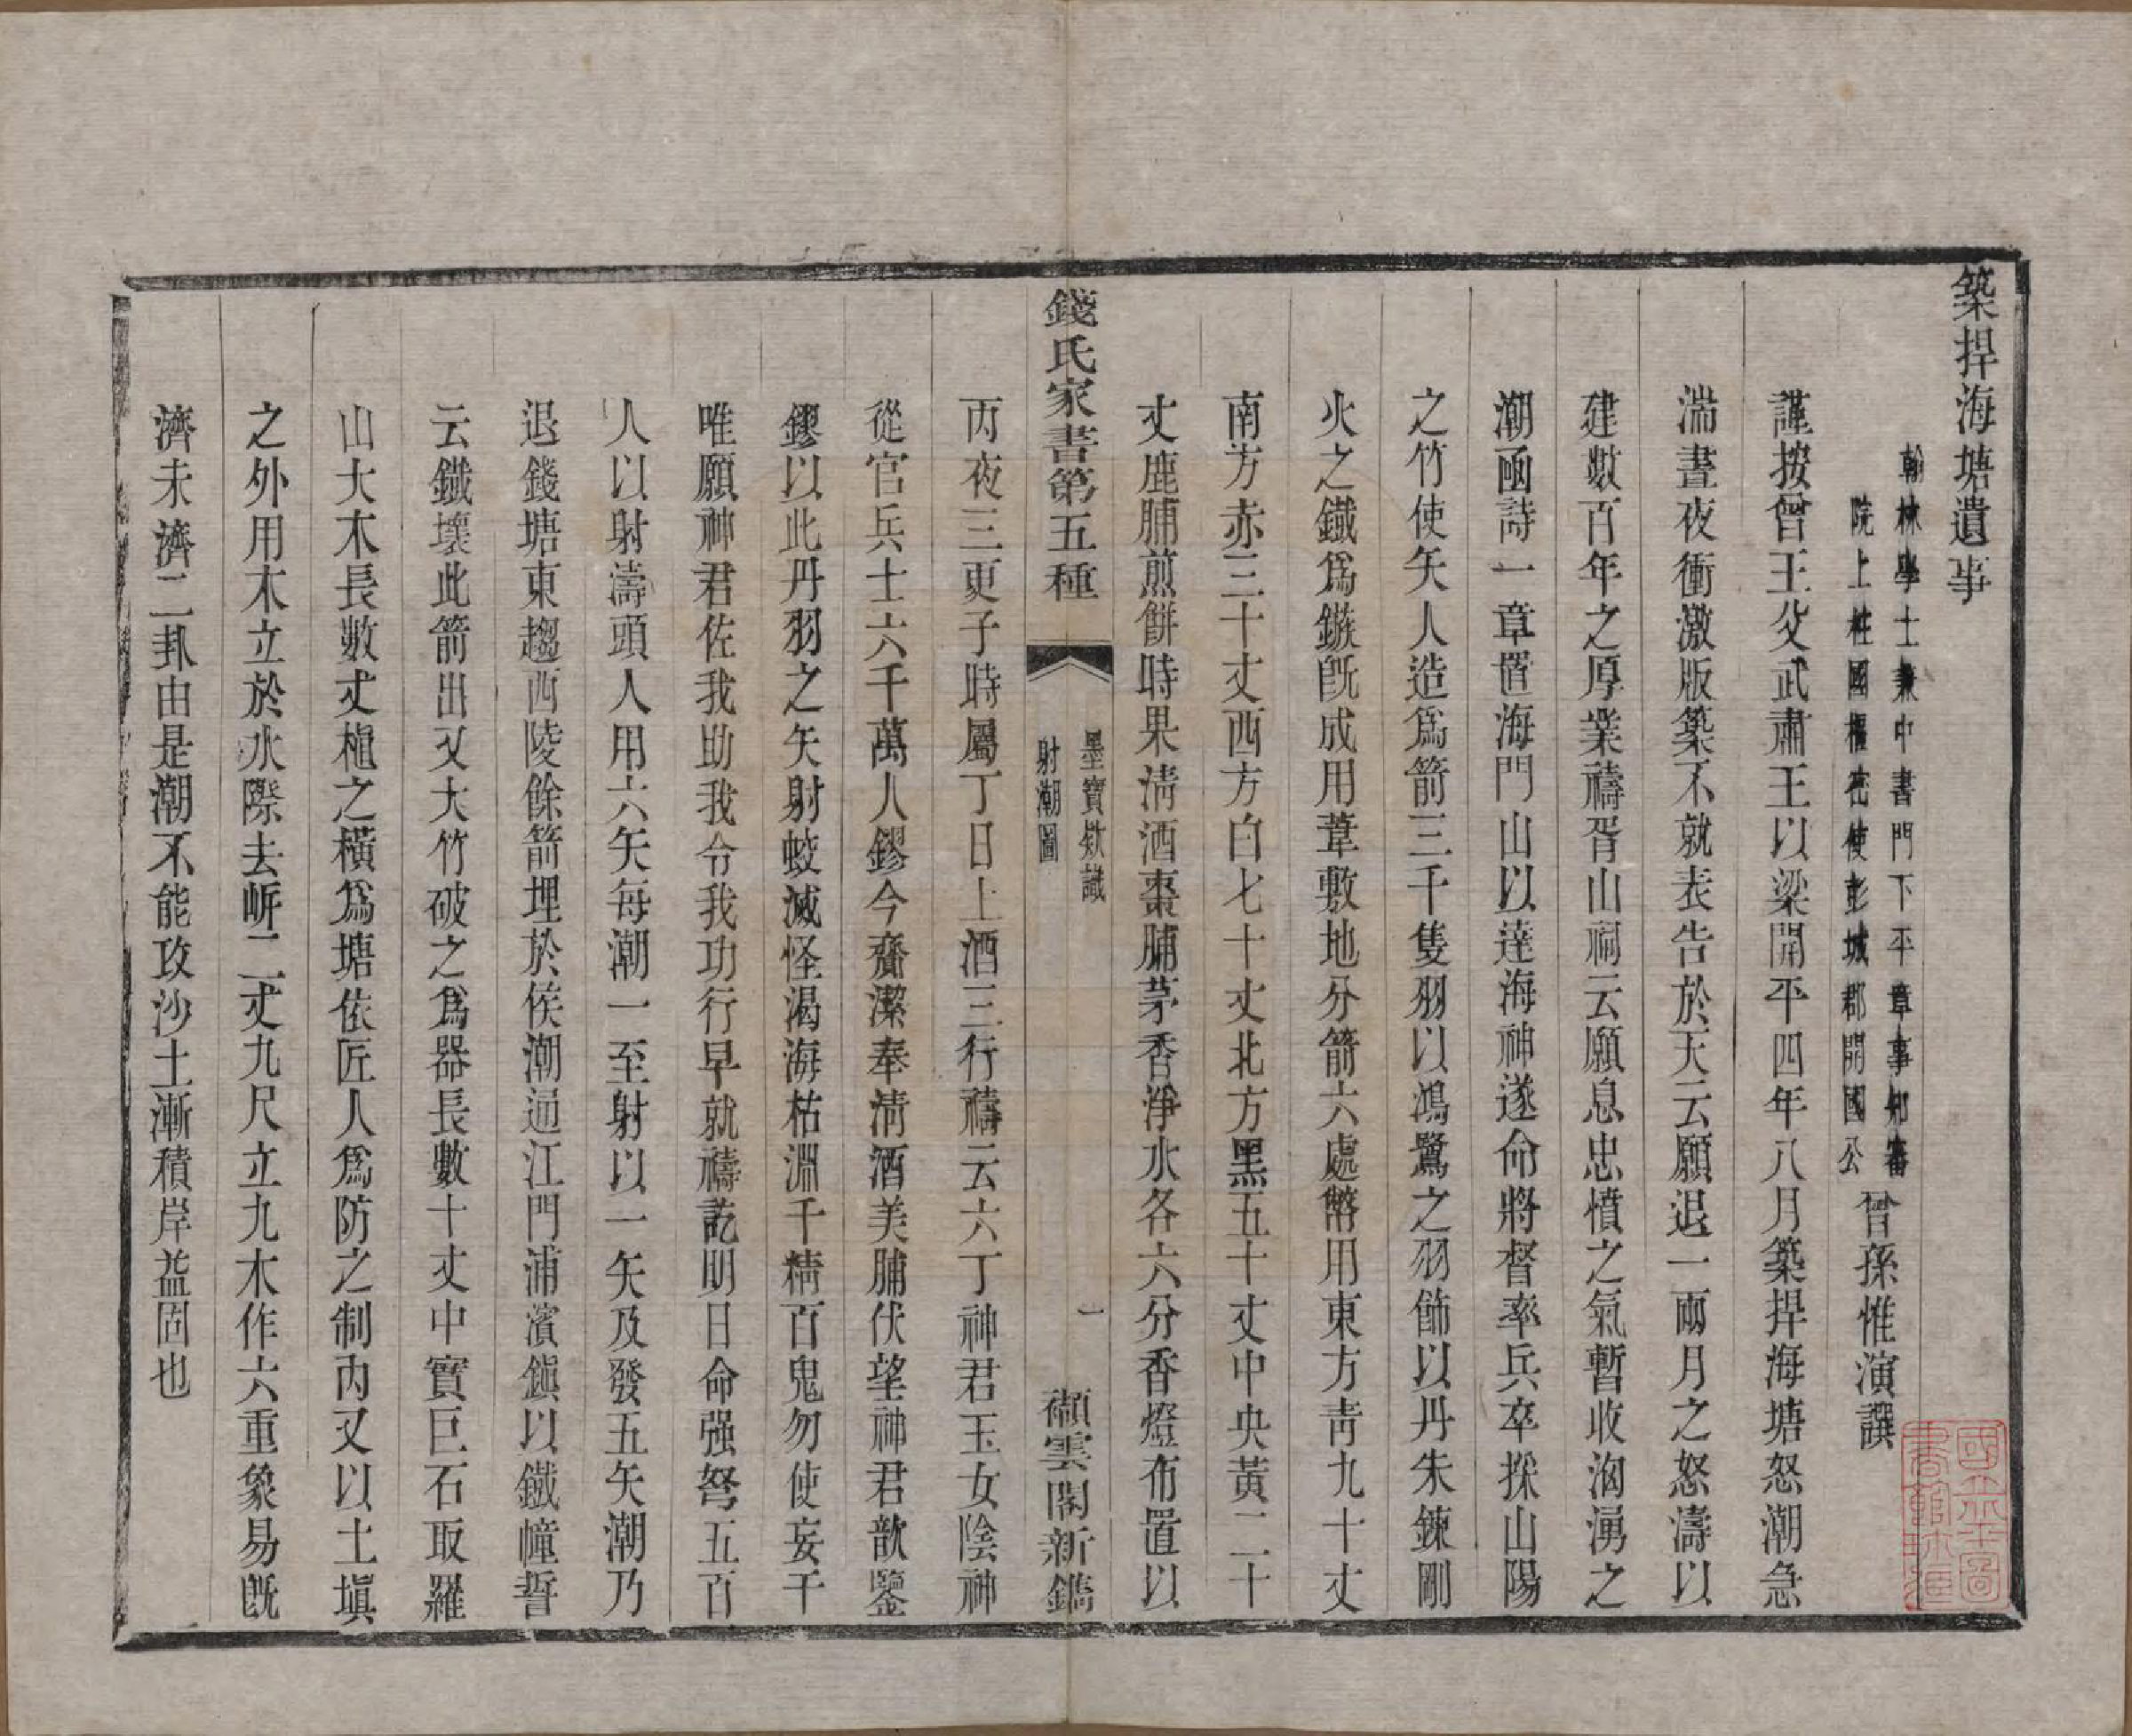 築捍海塘遺事
翰林學士兼中書門下平章事知審
院上柱國樞密使彭城郡開國公
曾孫惟演譔
謹按曾王父武肅王以梁開平四年八月築捍海塘怒潮急
湍晝夜衝激版築不就表告於天云願退一兩月之怒濤以
建數百年之厚業禱胥山祠云願息忠憤之氣暫收洶湧之
潮函詩一章置海門山以達海神遂命將督率兵卒採山陽
之竹使矢人造爲箭三千隻羽以鴻鷺之羽飾以丹朱鍊剛
火之鐵爲鏃旣成用葦敷地分箭六處幣用東方青九十丈
南方赤三十丈西方白七十丈北方黑五十丈中央黃二十
丈鹿脯煎餅時果清酒棗脯茅香淨水各六分香燈布置以
錢氏家書第五種
墨寶欵識
射潮圖
一
襭雲閣新鐫
丙夜三更子時屬丁日上酒三行禱云六丁神君玉女陰神
從官兵士六千萬人鏐今齋潔奉清酒美脯伏望神君歆鑒
鏐以此丹羽之矢射蛟滅怪渴海枯淵千精百鬼勿使妄干
唯願神君佐我助我令我功行早就禱訖明日命强弩五百
人以射濤頭人用六矢每潮一至射以一矢及發五矢潮乃
退錢塘東趨西陵餘箭埋於候潮通江門浦濱鎭以鐵幢誓
云鐵壞此箭出又大竹破之爲器長數十丈中實巨石取羅
山大木長數丈植之橫爲塘依匠人爲防之制內又以土塡
之外用木立於水際去岸二丈九尺立九木作六重象易旣
濟未濟二卦由是潮不能攻沙土漸積岸益固也